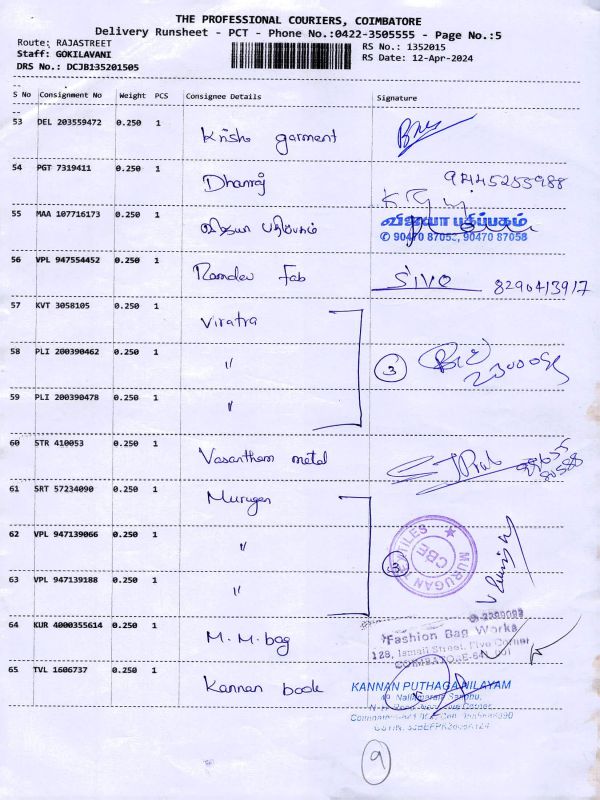 THE PROFESSIONAL COURIERS, COIMBATORE
Delivery Runsheet - PCT - Phone No.:0422-3505555 - Page No.:5
Route: RAJASTREET
RS No.: 1352015
Staff: GOKILAVANI
RS Date: 12-Apr-2024
DRS No.: DCJB135201505
S No Consignment No Weight PCS Consignee Details Signature
53 DEL 203559472 0.250 1 Krish garment
54 PGT 7319411 0.250 1 Dhanraj 9445255988
55 MAA 107716173 0.250 1 விஜயா பதிப்பகம் விஜயா பதிப்பகம்
✆ 90470 87053, 90470 87058
56 VPL 947554452 0.250 1 Ramdev Fab Siva 8290413917
57 KVT 3058105 0.250 1 Viratra
58 PLI 200390462 0.250 1 〃 3
59 PLI 200390478 0.250 1 〃
60 STR 410053 0.250 1 Vasantham metal
61 SRT 57234090 0.250 1 Murugan
62 VPL 947139066 0.250 1 〃 3 MURUGAN CBE
63 VPL 947139188 0.250 1 〃
64 KUR 4000355614 0.250 1 M.M.bag
Fashion Bag Works
128, Ismail Street, Five Corner
65 TVL 1606737 0.250 1 Kannan book KANNAN PUTHAGA NILAYAM
9